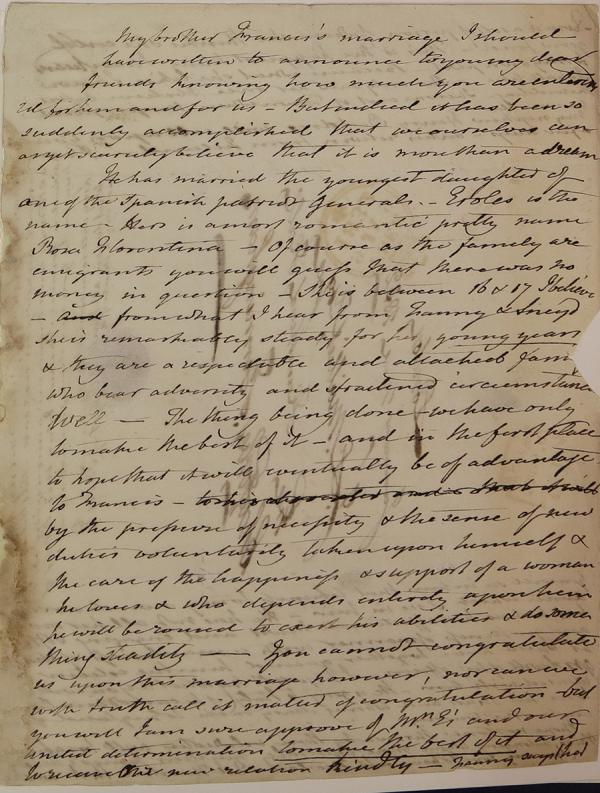 My brother Francis's marriage I should
have written to announce to you my dear
friends knowing how much you are interest
ed for him and for us - But indeed it has been so
suddenly accomplished that we ourselves can
as yet scarcely believe that it is more than a dream
He has married the youngest daughter of
one of the Spanish patriot Generals. - Eroles is the
name - Hers is a most romantic pretty name
Rosa Florentina - Of course as the family are
emigrants you will guess that there was no
money in question - She is between 16 & 17 I believe
- and from what I hear from Fanny & Sneyd
she is remarkably steady for her young years
& they are a respectable and attached family
who bear adversity and straitened circumstances
well - The thing being done - we have only
to make the best of it - and in the first place
to hope that it will eventually be of advantage
to Francis - to his character and that it will
by the pressure of necessity & the sense of new
duties voluntarily taken upon himself &
the care of the happiness & support of a woman
he loves & who depends entirely upon him
he will be roused to exert his abilities & do some
thing steadily — You cannot congratulate
us upon this marriage however, nor can we
with truth call it matter of congratulation - but
you will I am sure approve of Mrs E's and our
united determination to make the best of it and
to receive the new relation kindly — Fanny says that